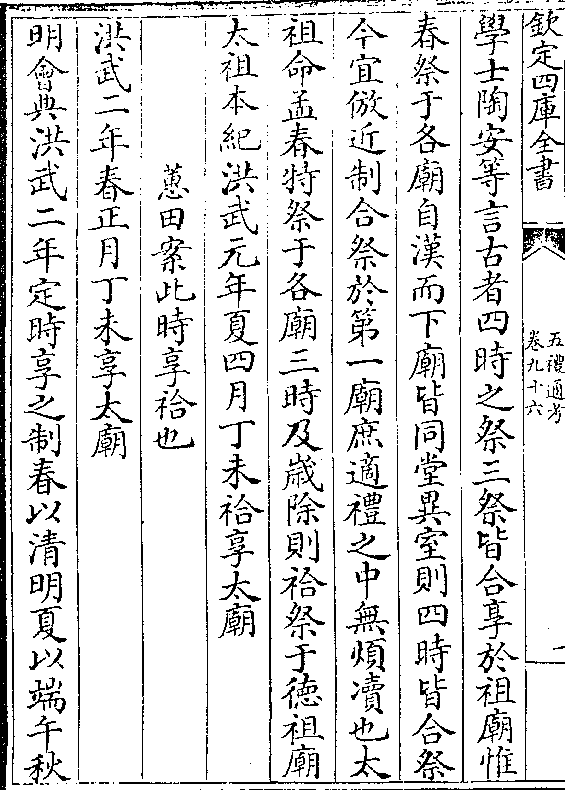 欽定四庫全書
五禮通考
卷九十六
一
學士陶安等言古者四時之祭三祭皆合享於祖廟惟
春祭于各廟自漢而下廟皆同堂異室則四時皆合祭
今宜倣近制合祭於第一廟庶適禮之中無煩凟也太
祖命孟春特祭于各廟三時及嵗除則祫祭于徳祖廟
太祖本紀洪武元年夏四月丁未祫享太廟
蕙田案此時享祫也
洪武二年春正月丁未享太廟
明會典洪武二年定時享之制春以清明夏以端午秋